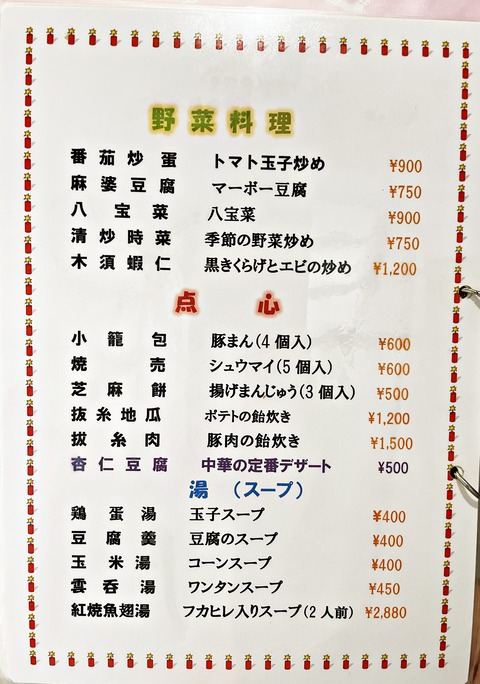 野菜料理
番茄炒蛋 トマト玉子炒め ¥900
麻婆豆腐 マーボー豆腐 ¥750
八宝菜 八宝菜 ¥900
清炒時菜 季節の野菜炒め ¥750
木須蝦仁 黒きくらげとエビの炒め ¥1,200
点心
小籠包 豚まん(4個入) ¥600
焼売 シュウマイ(5個入) ¥600
芝麻餅 揚げまんじゅう(3個入) ¥500
抜糸地瓜 ポテトの飴炊き ¥1,200
拔糸肉 豚肉の飴炊き ¥1,500
杏仁豆腐 中華の定番デザート ¥500
湯 (スープ)
鶏蛋湯 玉子スープ ¥400
豆腐羹 豆腐のスープ ¥400
玉米湯 コーンスープ ¥400
雲呑湯 ワンタンスープ ¥450
紅焼魚翅湯 フカヒレ入りスープ(2人前) ¥2,880